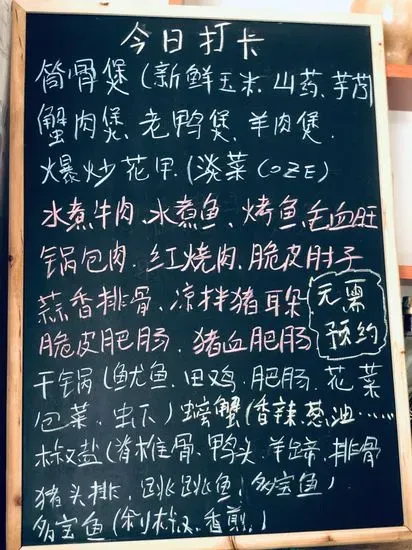 今日打卡
筒骨煲(新鲜玉米、山药、芋艿)
蟹肉煲、老鸭煲、羊肉煲、
爆炒花甲、(淡菜COZE)
水煮牛肉、水煮鱼、烤鱼、毛血旺
锅包肉、红烧肉、脆皮肘子
蒜香排骨、凉拌猪耳朵
脆皮肥肠、猪血肥肠
无需
预约
干锅(鱿鱼、田鸡、肥肠、花菜
包菜、虫下)螃蟹(香辣、葱油……
椒盐(脊椎骨、鸭头、羊蹄、排骨
猪头排、跳跳鱼、多宝鱼)
多宝鱼(剁椒、香煎、)